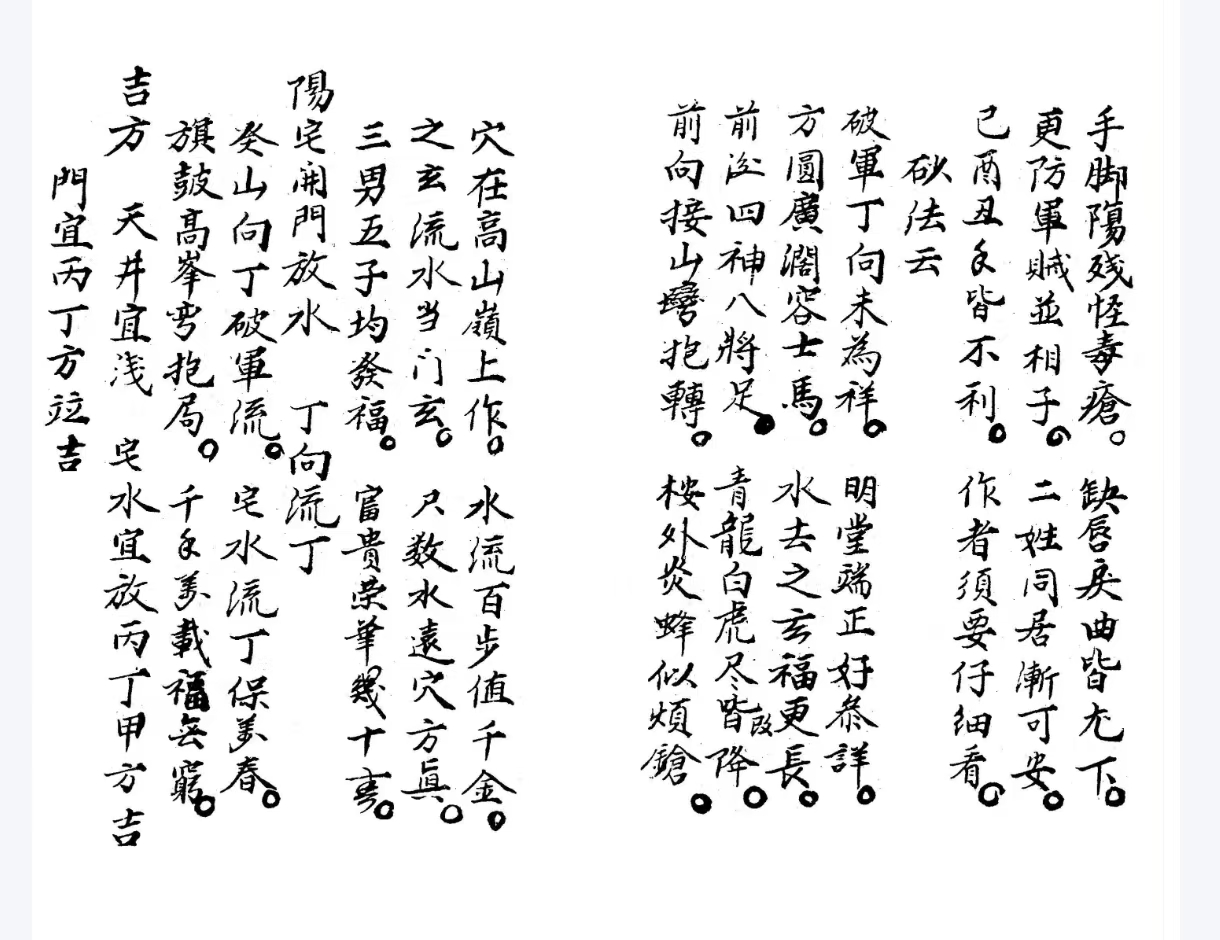 手脚陽残怪毒瘡。缺唇戾曲皆尤下。
更防軍賊並相子。二姓同居漸可安。
己酉丑年皆不利。作者須要仔細看。
砂法云
破軍丁向未為祥。明堂端正好叅詳。
方圓廣濶容士馬。水去之玄福更長。
前後四神八將足。青龍白虎尽皆啟降。
前向接山彎抱轉。桉外炎蜂似煩鎗。
穴在高山嶺上作。水流百步值千金。
之玄流水当门玄。只数水遠穴方眞。
三男五子均發福。富貴荣華幾十
陽宅開門放水 丁向流丁
癸山向丁破軍流。宅水流丁保萬春。
旗鼓高峯弯抱局。千年萬載福無窮。
吉方 天井宜浅 宅水宜放丙丁甲方吉
門宜丙丁方竝吉